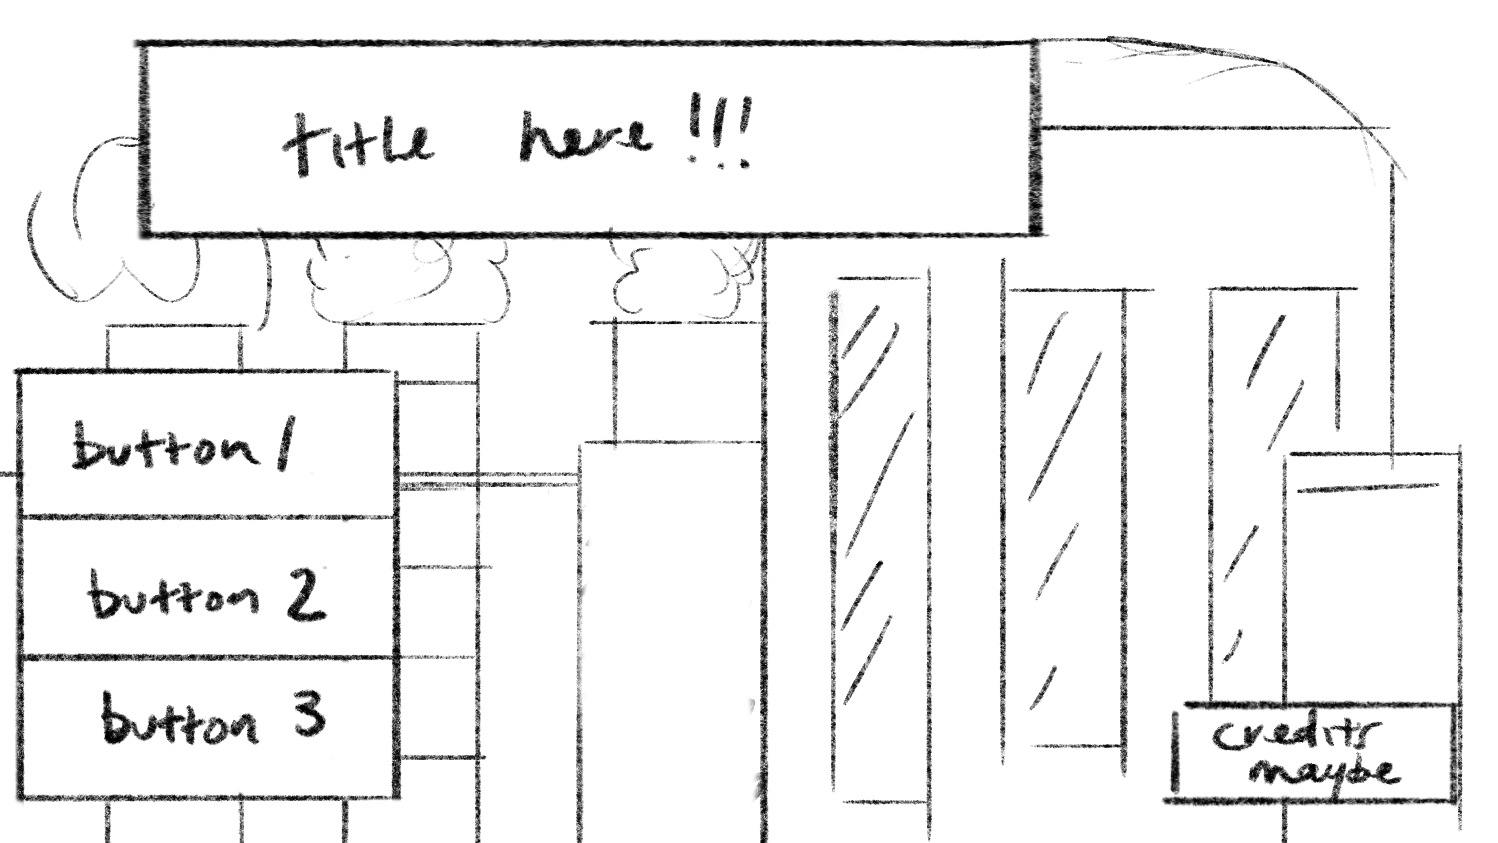 title here !!!
button 1
button 2
button 3
credits
maybe